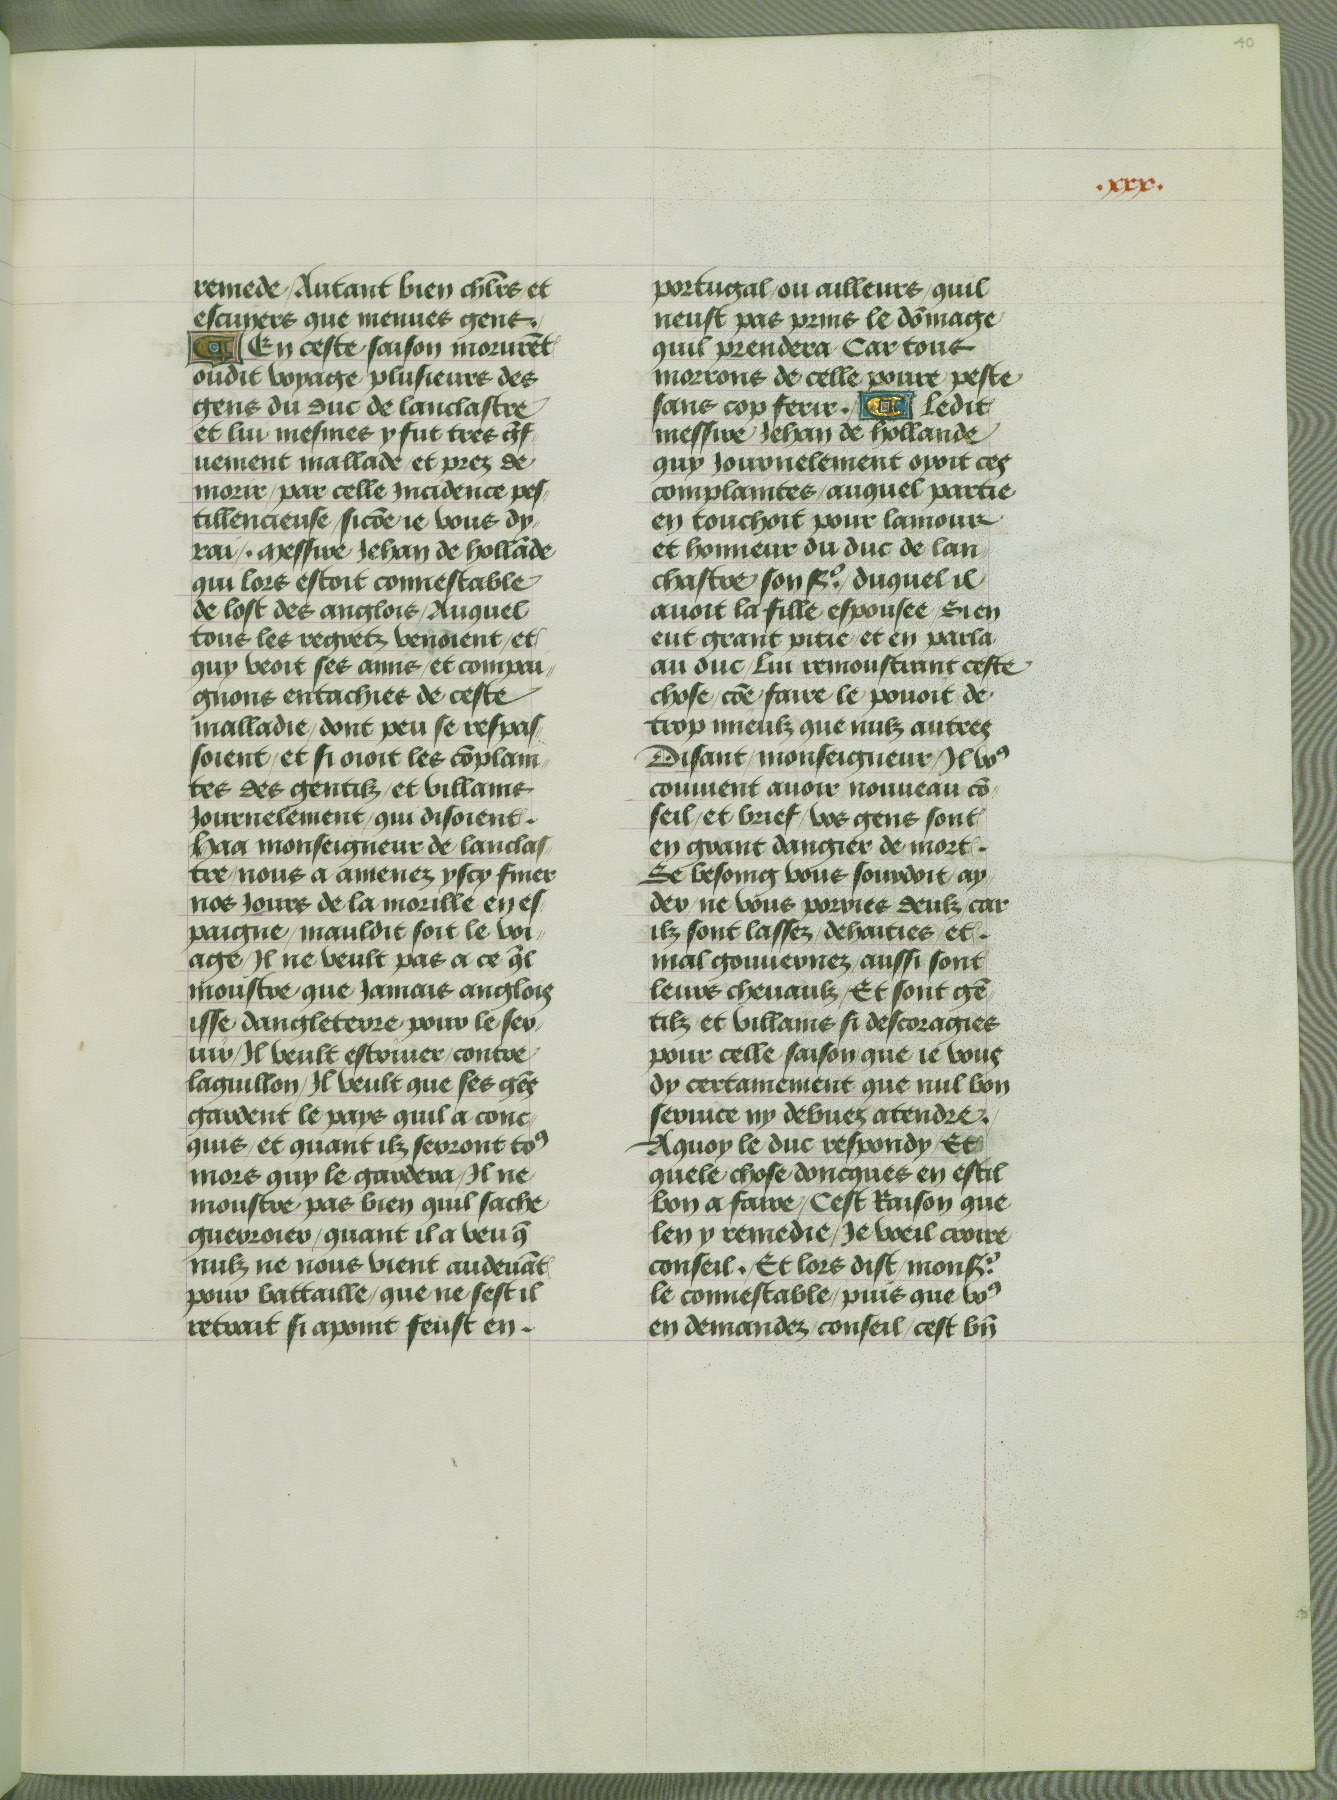 40
.xxx.
remede / Autant bien chl̄rs et
escuyers que menues gens.
¶ En ceste saison morurēt
oudit voyage plusieurs des
gens du duc de lanclastre
et lui mesmes y fut tres gͣf
uement mallade et prez de
morir / par celle Incidence pes
tillencieuse / sicōe ie vous dy
rai /. Messire Jehan de hollāde
qui lors estoit connestable
de lost des anglois / Auquel
tous les regretz venoient / et
quy veoit ses amis / et compai
gnons entachies de ceste
malladie / dont peu se respas
soient / et si oioit les cōplain
tes des gentilz / et villains
Journelement / qui disoient .
Haa monseigneur de lanclas
tre / nous a amenez yscy finer
nos Jours de la morille en es
paigne / mauldit soit le voi
age / Il ne veult pas a ce q̄l
moustre que Jamais anglois
isse dangleterre pour le ser
uir / Il veult estriuer / contre
laguillon / Il veult que ses gēs
gardent le pays quil a conc
quis / et quant ilz seront toꝰ
mors quy le gardera / Il ne
moustre pas bien quil sache
guerroier / quant il a veu q̄
nulz ne nous vient audeuāt
pour battaille / que ne sest il
retrait si apoint feust en .
portugal / ou ailleurs / quil
neust pas prins le dōmage
quil prendera Car tous
morrons de celle poure peste
sans cop ferir . ¶ Ledit
messire Jehan de hollande
quy Journelement oyoit ces
complaintes / auquel partie
en touchoit pour lamour
et honneur du duc de lan
chastre son sr̄ / duquel il
auoit la fille espousee / Sien
eut grant pitie / et en parla
au duc / Lui remoustrant ceste
chose / cōe faire le pouoit de
trop mieulz que nulz autres
Disant / monseigneur / Il voꝰ
couuient auoir nouueau cō
seil / et brief / vos gens sont
en grant dangier de mort .
Se besoing vous sourdoit / ay
der / ne vous porries deulz car
ilz sont lassez / dehaities / et .
mal gouuernez / aussi sont
leurs cheuaulz / Et sont gē
tilz et villains si descoragies
pour celle saison que ie vous
dy certainement que nul bon
seruice ny debuez atendre .
Aquoy le duc respondy / Et
quele chose doncques en estil
bon a faire / Cest Raison que
len y remedie / Je voeil croire
conseil . / Et lors dist / monsr̄
le connestable / puis que voꝰ
en demandez / conseil / cest vn̄